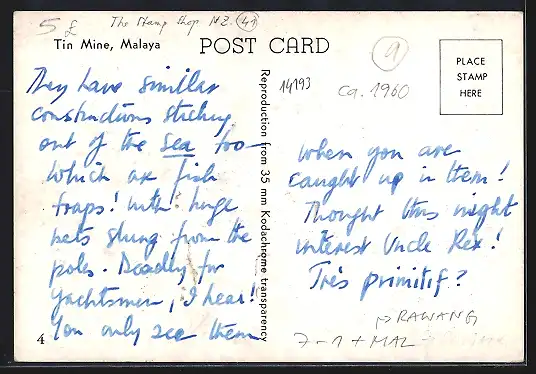 5 £
The Stamp Shop NZ. 41
Tin Mine, Malaya
POST CARD
9
PLACE
STAMP
HERE
14193
ca. 1960
They have similar
constructions sticking
out of the sea too—
which are fish
traps! with huge
nets slung from the
poles. Deadly for
yachtsmen, I hear!
You only see them
4
Reproduction from 35 mm Kodachrome transparency
when you are
caught up in them!
Thought this might
interest Uncle Rex!
Très primitif?
→ RAWANG
7-1 + MAL